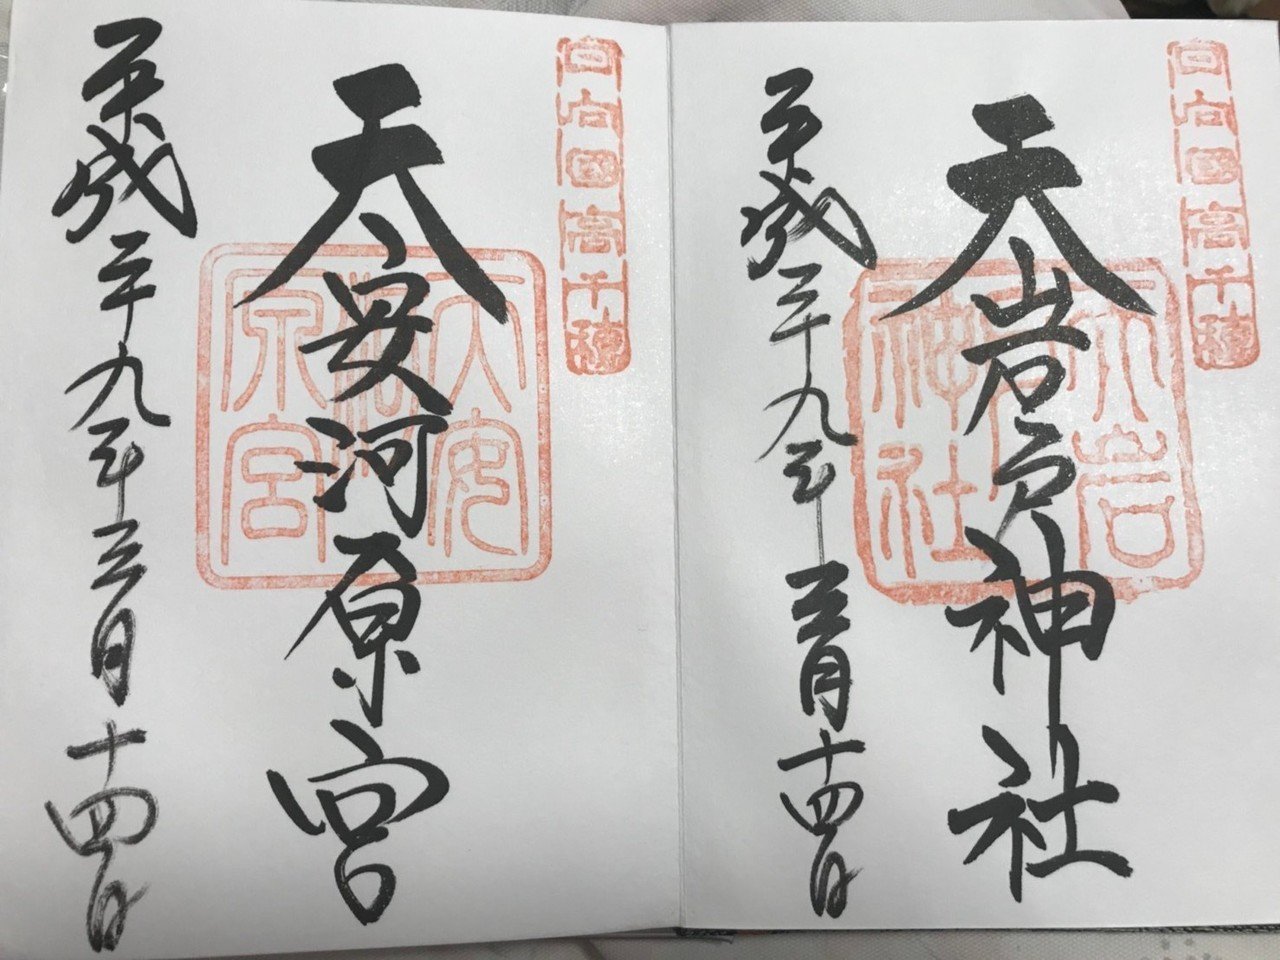 日向國高千穂
天岩戸神社
天岩
戸
神社
平成二十九年三月十四日
日向國高千穂
天安河原宮
天安
河
原宮
平成二十九年三月十四日